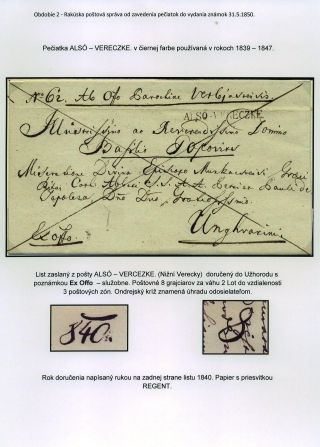 Obdobie 2 - Rakúska poštová správa od zavedenia pečiatok do vydania známok 31.5.1850.
Pečiatka ALSÓ – VERECZKE. v čiernej farbe používaná v rokoch 1839 – 1847.
No 62. Ab Offo Parochiae
ALSÓ VERECZKE
Illustrissimo ac Reverendissimo Domino
Basilio Popovics
Miseratione Divina Episcopo Munkacsiensi
Unghvarini
Ex offo
List zaslaný z pošty ALSÓ – VERCEZKE. (Nižní Verecky) doručený do Užhorodu s
poznámkou Ex Offo – služobne. Poštovné 8 grajciarov za váhu 2 Lot do vzdialenosti
3 poštových zón. Ondrejský kríž znamená úhradu odosielateľom.
840.
8
Rok doručenia napísaný rukou na zadnej strane listu 1840. Papier s priesvitkou
REGENT.